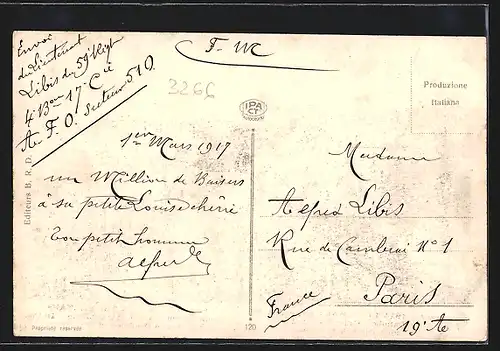 Envoi
du Lieutenant
Libis du 59e Regt
4e Bon 17e Cie
A. F. O. Secteur 510
F-M
3266
Produzione
Italiana
IPA
CT
1er Mars 1917
un Million de Baisers
à sa petite Louise chérie
Ton petit homme
Alfred
Madame
Alfred Libis
Rue de Cambrai N° 1
Paris
19e Ar
France
Editeurs B. R. D.
Proprieté reservée
120